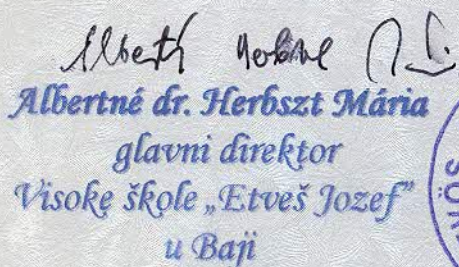 Albertné dr. Herbszt Mária
glavni direktor
Visoke škole „Etveš Jozef”
u Baji